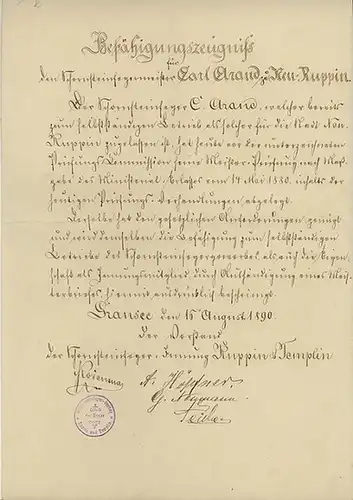 Befähigungszeugniß
für
den Schornsteinfegermeister Carl Arand zu Neu-Ruppin.
Der Schornsteinfeger C. Arand, welcher bereits
zum selbstständigen Betrieb als solcher für die Stadt Neu-
Ruppin zugelassen ist, hat heute vor der unterzeichneten
Prüfungs-Commission seine Meister-Prüfung nach Maß-
gabe des Ministerial-Erlasses vom 14 Mai 1880. inhalts der
heutigen Prüfungs-Verhandlungen abgelegt.
Derselbe hat den gesetzlichen Anforderungen genügt
und wird demselben die Befähigung zum selbstständigen
Betriebe des Schornsteinfegergewerbes, als auch die Eigen-
schaft als Innungsmitglied, durch Aushändigung eines Mei-
sterbriefes, hiermit ausdrücklich bescheinigt.
Gransee den 15 August 1890.
Der Vorstand
der Schornsteinfeger-Innung Ruppin & Templin
A. Höppner.
G. Neumann